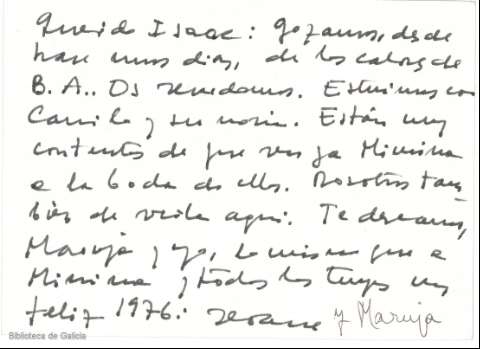 Querido Isaac: gozamos, desde
hace unos días, de los calores de
B. A.. Os recordamos. Estuvimos con
Camilo y su novia. Están muy
contentos de que venga Mimina
a la boda de ellos. Nosotros tam
bién de verla aquí. Te deseamos,
Maruja y yo, lo mismo que a
Mimina y todos los tuyos un
feliz 1976: Seoane y Maruja
Biblioteca de Galicia